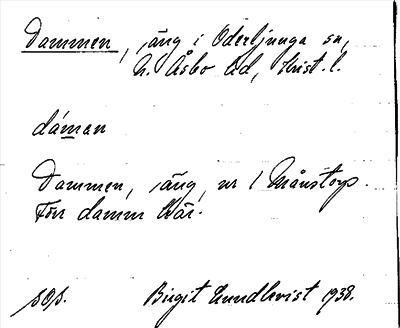 Dammen, äng i Oderljunga sn,
N. Åsbo hd, Krist. l.
dáman
Dammen, äng, nr 1 Månstorp.
Förr damm där.
sos.
Birgit Lundkvist 1938.